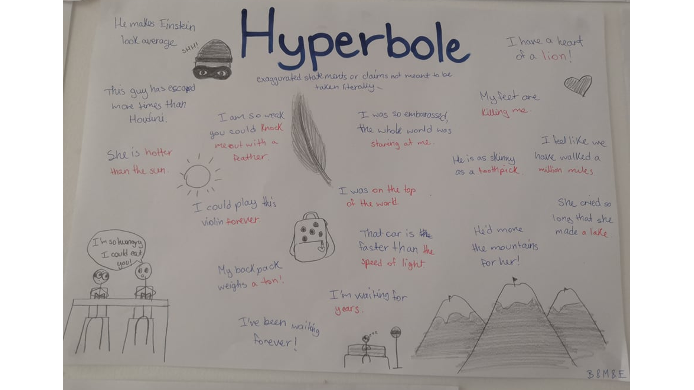 Hyperbole
exaggerated statements or claims not meant to be
taken literally.
He makes Einstein
look average.
SHH!
I have a heart
of a lion!
This guy has escaped
more times than
Houdini.
I am so weak
you could knock
me out with a
feather
I was so embarrassed,
the whole world was
staring at me.
My feet are
killing me.
She is hotter
than the sun.
He is as skinny
as a toothpick
I feel like we
have walked a
million miles
I could play this
violin forever.
I was on the top
of the world!
She cried so
long that she
made a lake
I'm so hungry
I could eat
you!
That car is the
faster than the
speed of light
He'd move
the mountains
for her!
My backpack
weighs a ton!
I'm waiting for
years.
I've been waiting
forever!